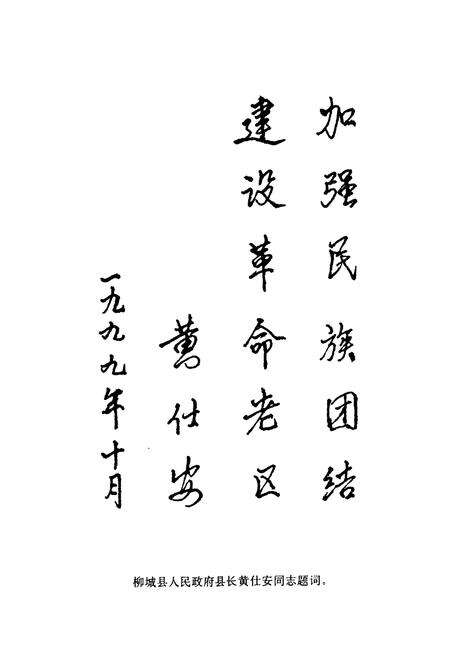 加强民族团结
建设革命老区
黄仕安
一九九九年十月
柳城县人民政府县长黄仕安同志题词。